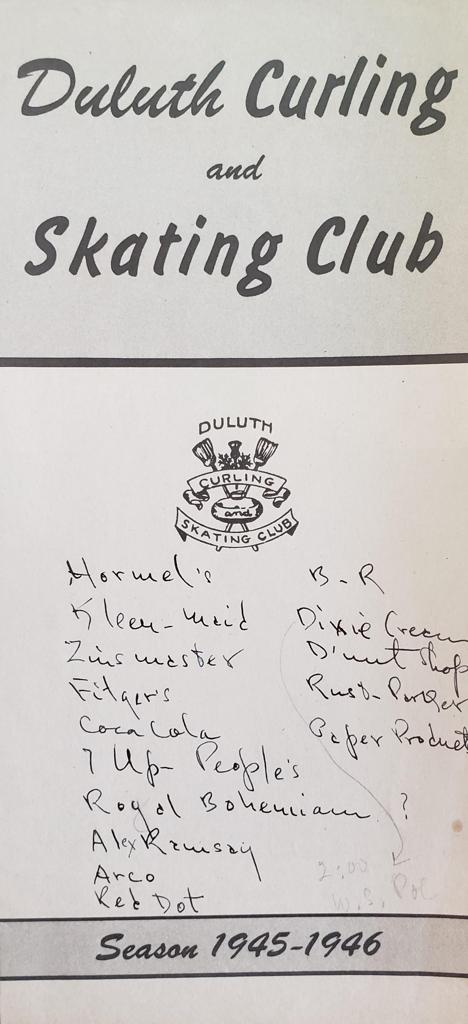 Duluth Curling
and
Skating Club
DULUTH
CURLING
and
SKATING CLUB
Hormel's
Kleen-maid
Zinsmaster
Fitger's
Coca Cola
7 Up - People's
Royal Bohemian ?
Alex Ramsay
Arco
Red Dot
B-R
Dixie Cream
D'nut Shop
Rust-Parker
Paper Product
2:00
W.S.
Season 1945-1946